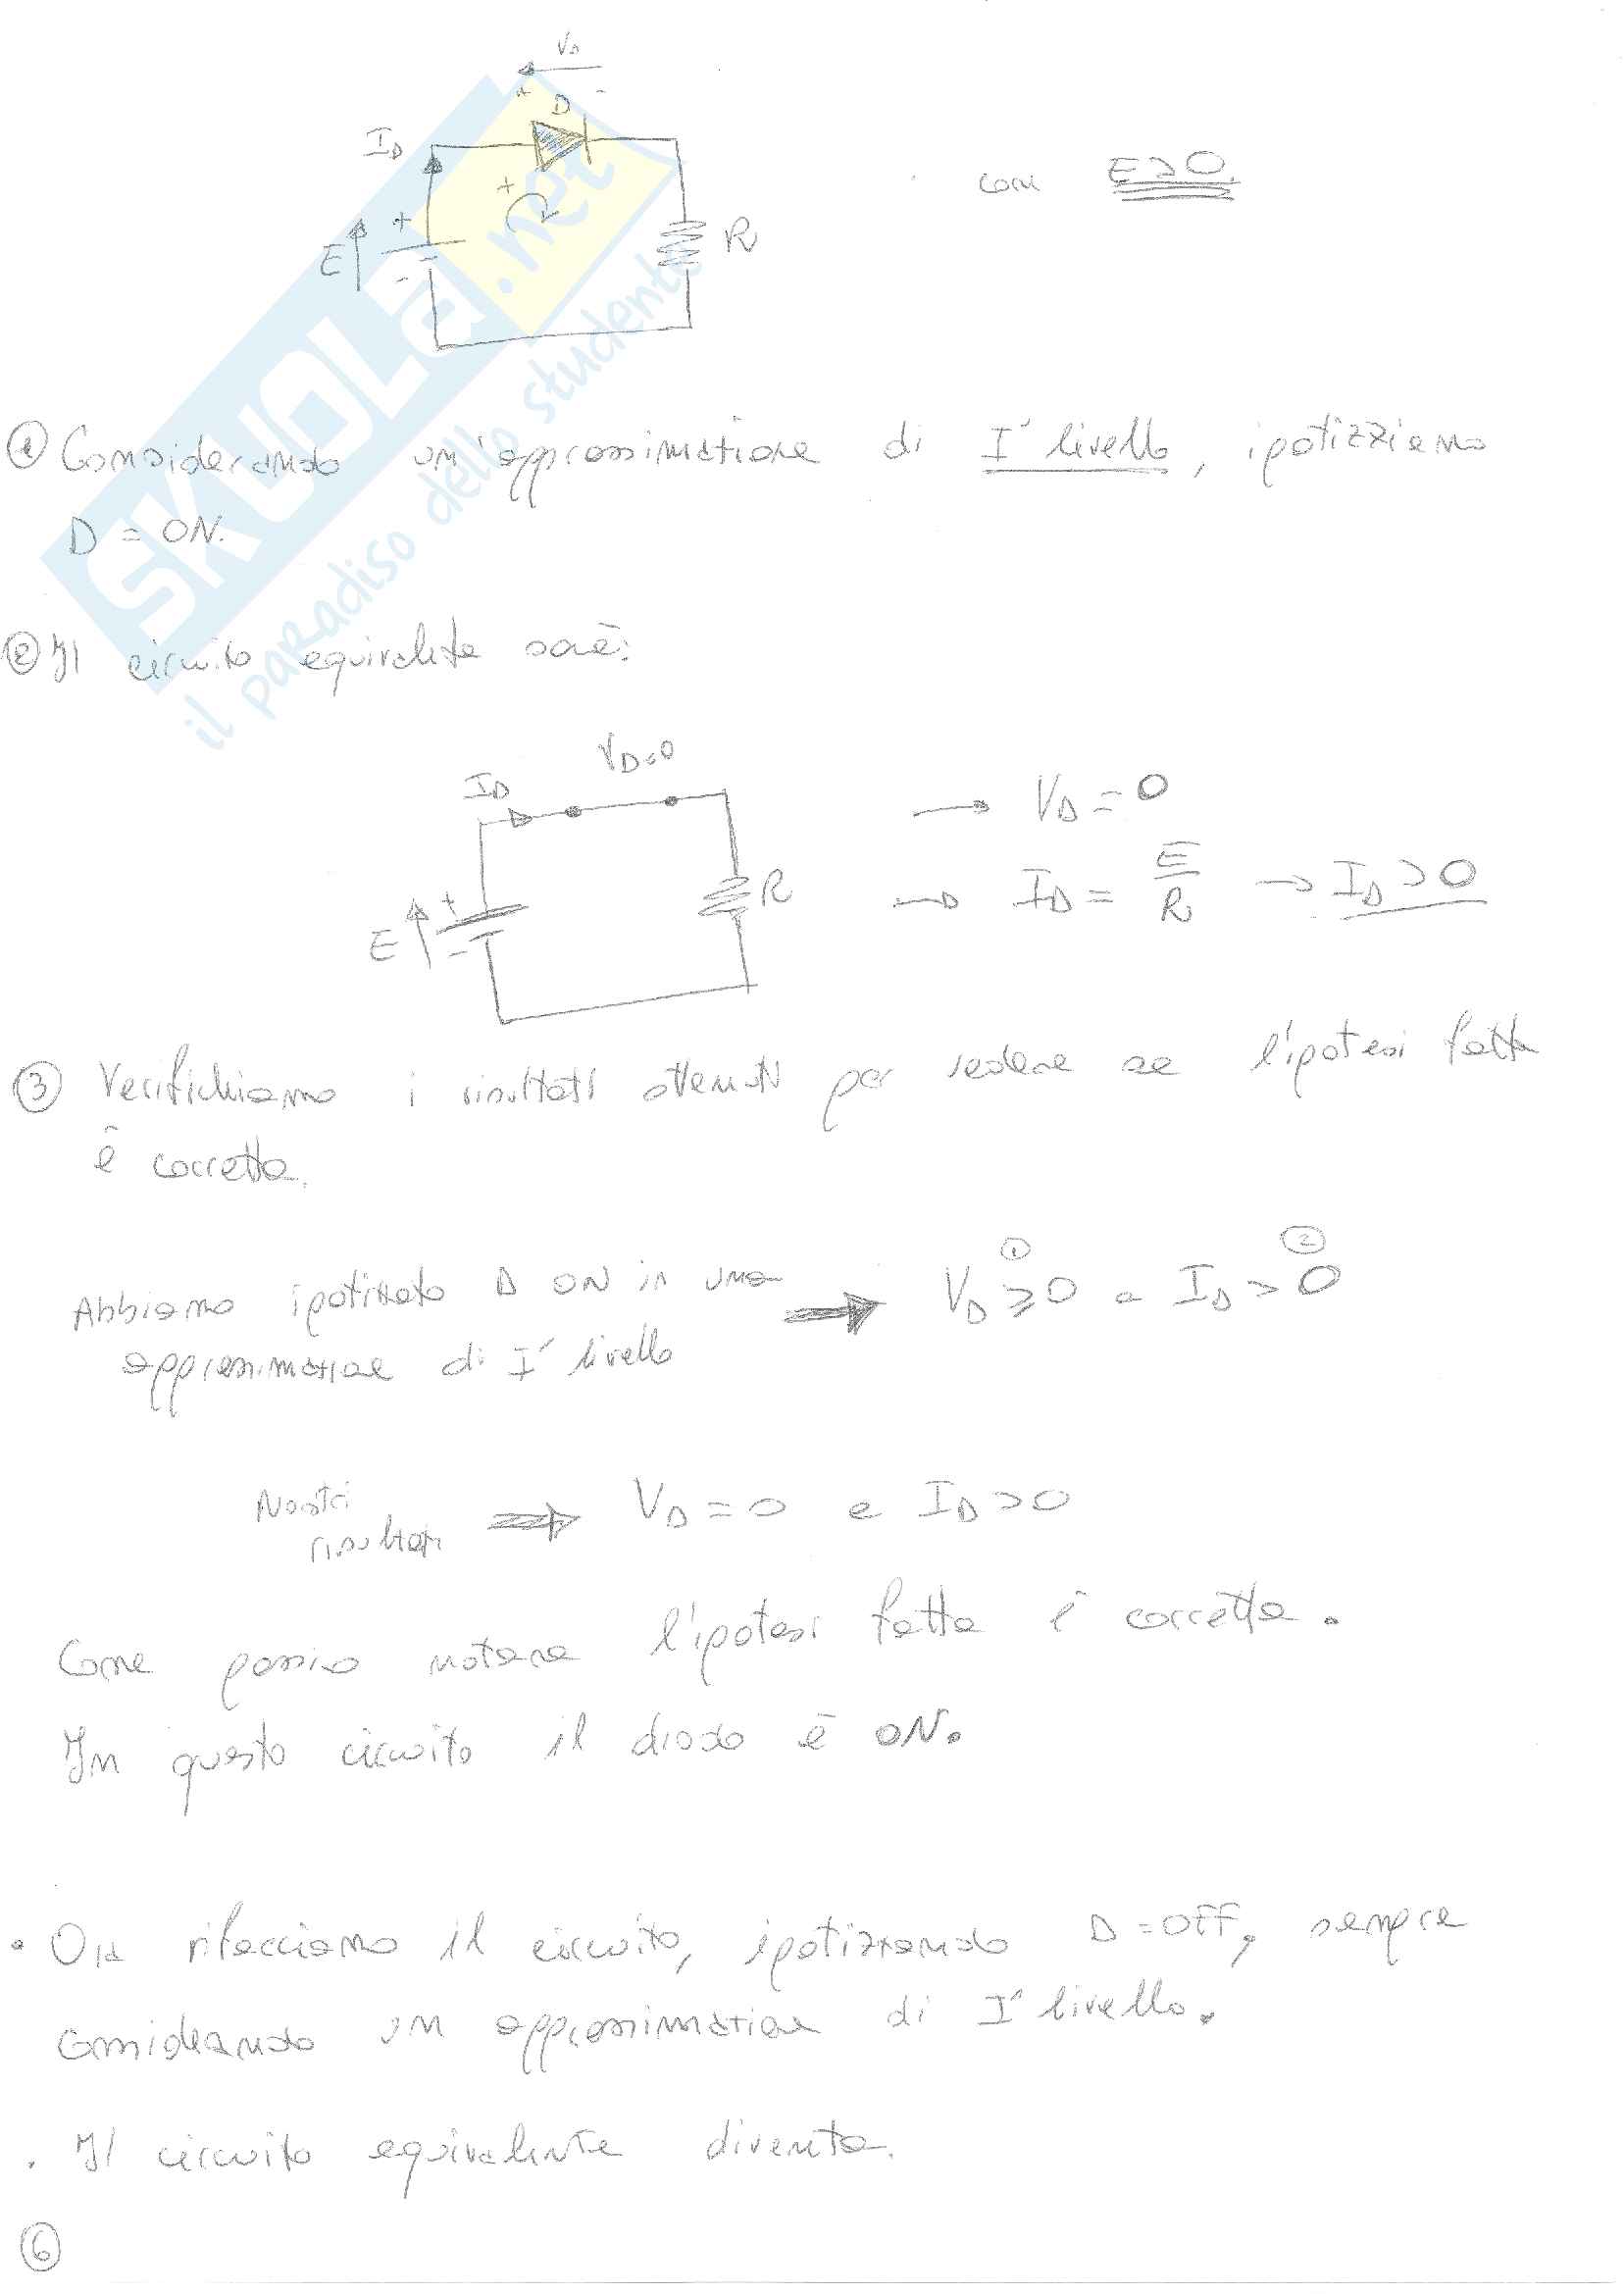 VD
+ D -
ID
+
+
E
-
R
con E>0.
SKUOLA.net
il paradiso dello studente
① Considerando un'approssimazione di I° livello, ipotizziamo
D = ON.
② Il circuito equivalente sarà:
ID VD=0
+
E
-
R
→ VD = 0
→ ID = E/R → ID > 0
③ Verifichiamo i risultati ottenuti per vedere se l'ipotesi fatta
è corretta.
① ②
Abbiamo ipotizzato D ON in una → VD ≥ 0 e ID > 0
approssimazione di I° livello
Nostri
risultati ⇒ VD = 0 e ID > 0
Come possiamo notare l'ipotesi fatta è corretta.
In questo circuito il diodo è ON.
• Ora rifacciamo il circuito, ipotizzando D = OFF, sempre
considerando un approssimazione di I° livello.
. Il circuito equivalente diventa.
⑥